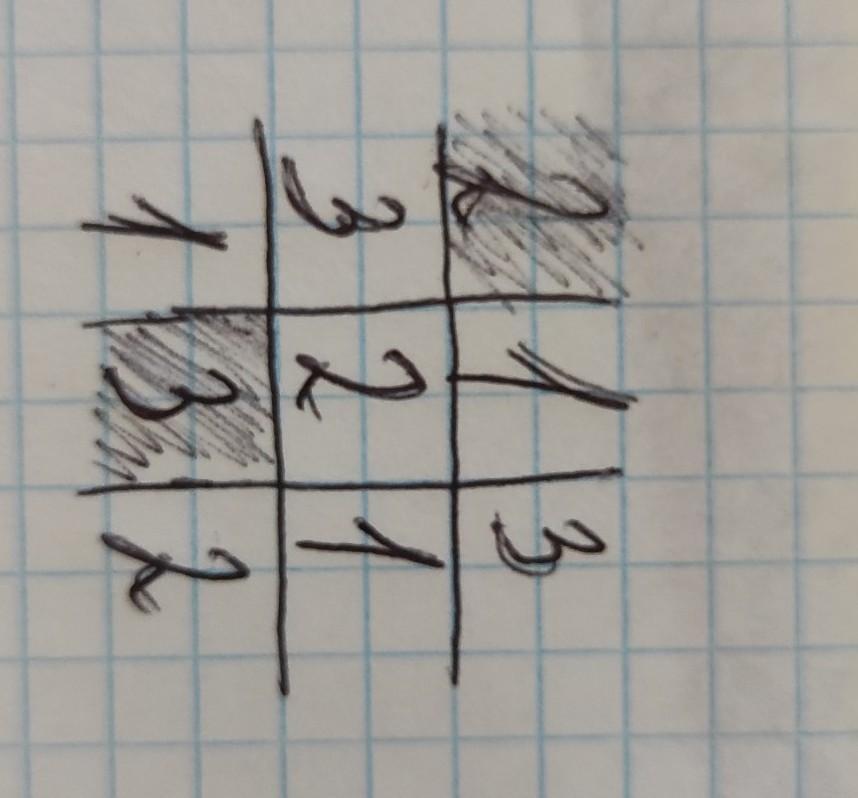 2 1 3
3 2 1
1 3 2